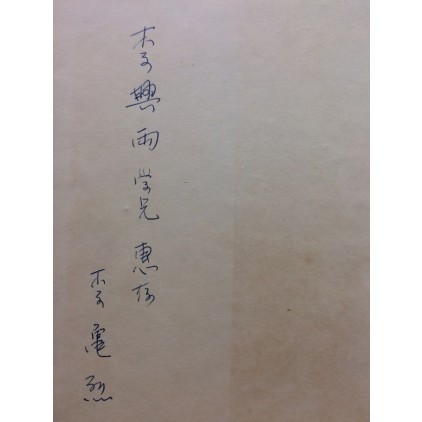 李興雨 学兄 惠存
李龜烈